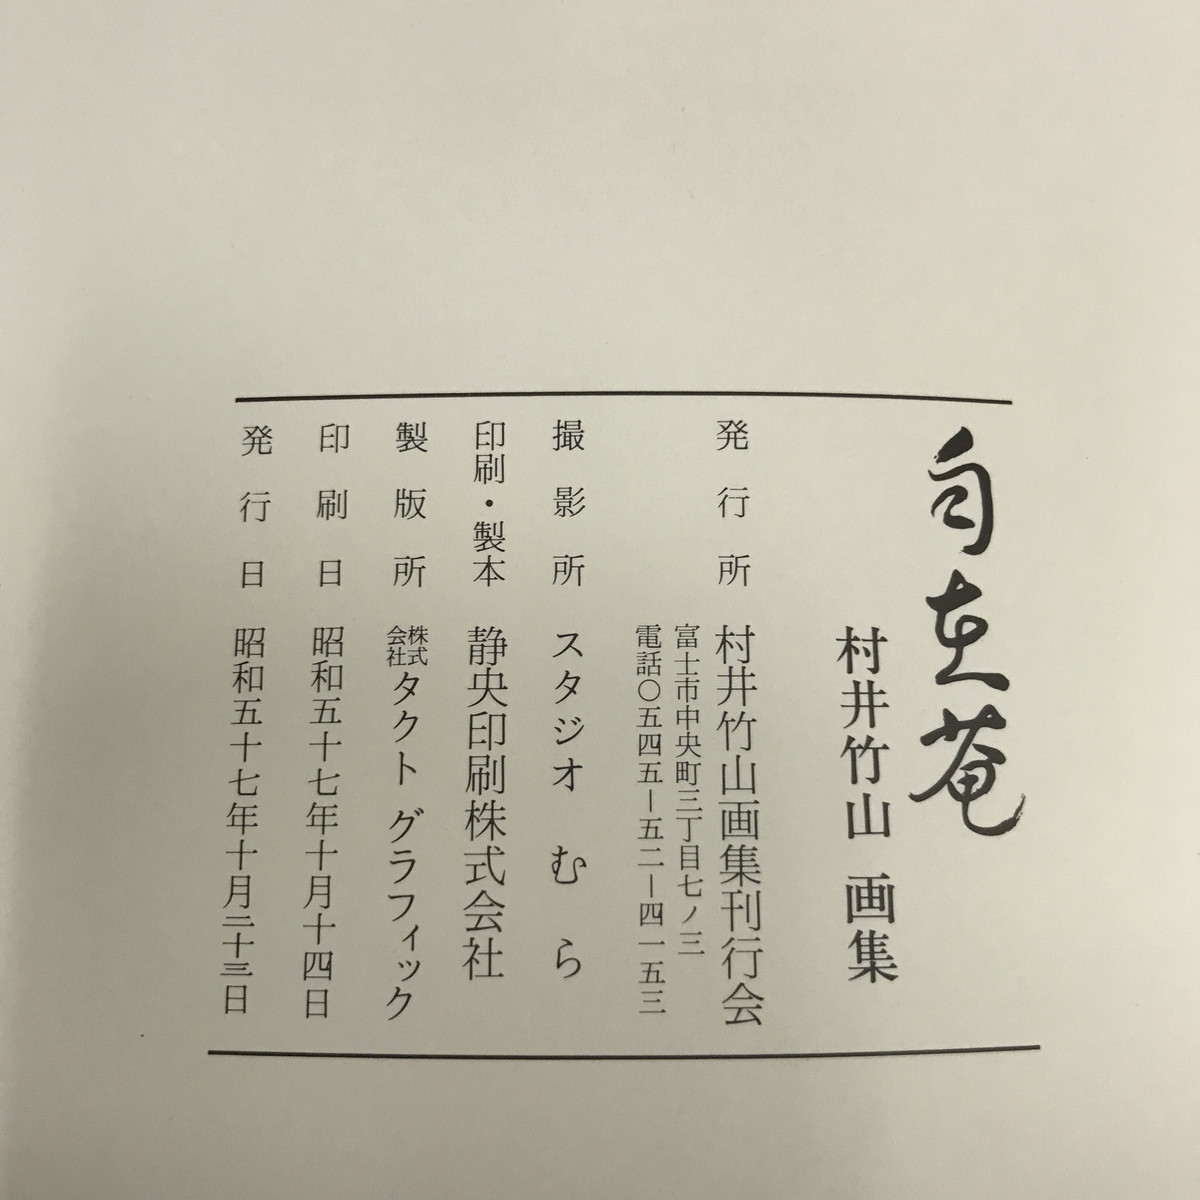 自在菴
村井竹山 画集
発行所 村井竹山画集刊行会
富士市中央町三丁目七ノ三
電話〇五四五ー五二ー四一五三
撮影所 スタジオ むら
印刷・製本 静央印刷株式会社
製版所 株式会社タクト グラフィック
印刷日 昭和五十七年十月十四日
発行日 昭和五十七年十月二十三日